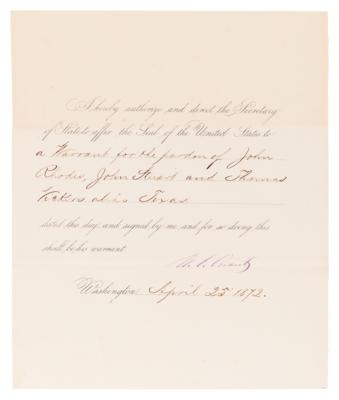 I hereby authorize and direct the Secretary
of State to affix the Seal of the United States to
a Warrant for the pardon of John
Rhodes, John Stuart and Thomas
alias Texas
dated this day, and signed by me, and for so doing this
shall be his warrant.
U. S. Grant
Washington, April 25 1872.